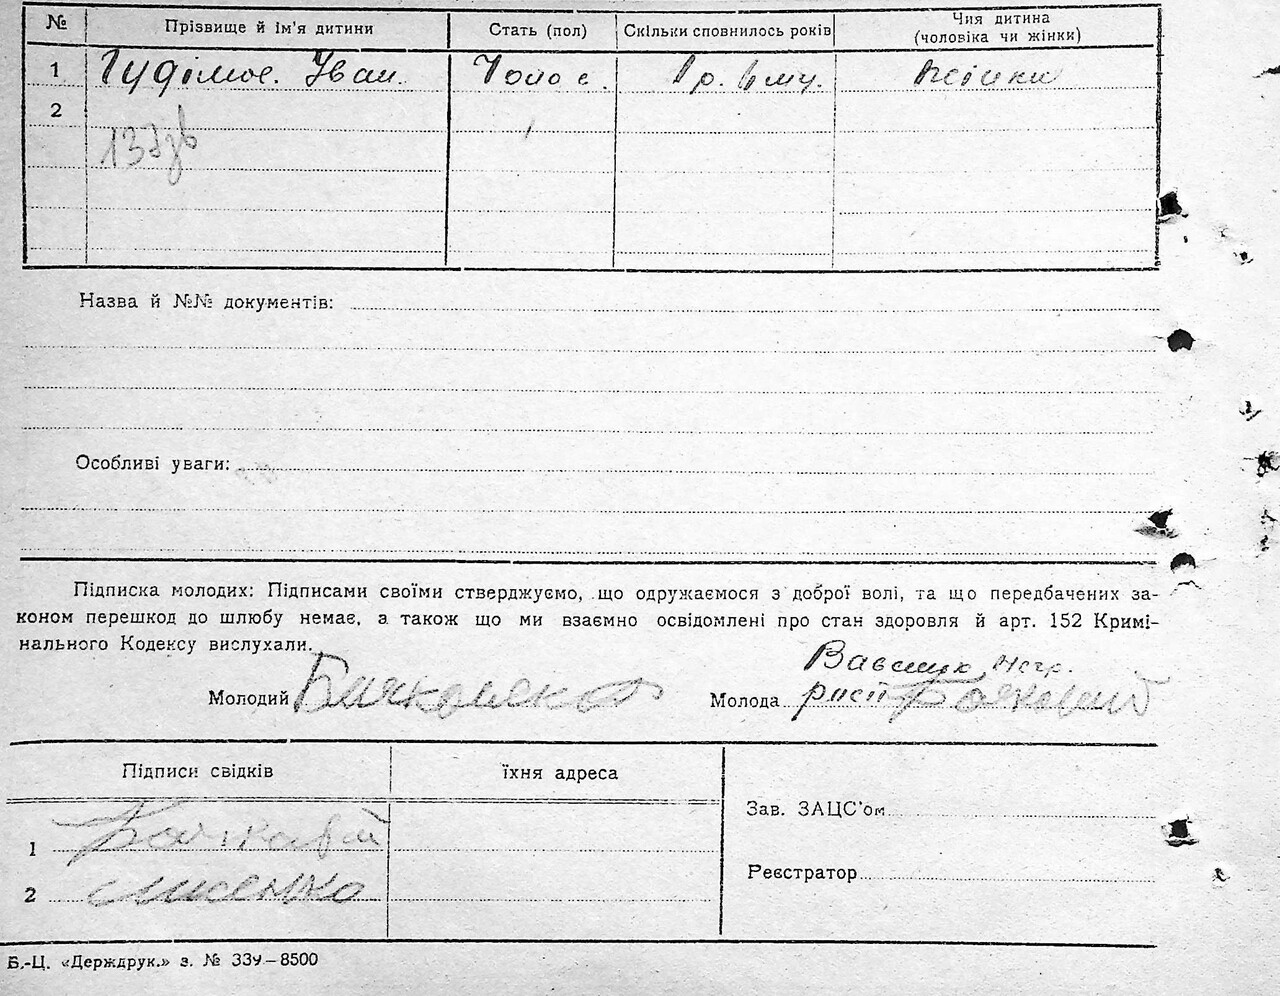 № Прізвище й ім'я дитини Стать (пол) Скільки сповнилось років Чия дитина (чоловіка чи жінки)
1 Іван. Чолов. 1 р. жінки
2
Назва й №№ документів:
Особливі уваги:
Підписка молодих: Підписами своїми стверджуємо, що одружаємося з доброї волі, та що передбачених за-
коном перешкод до шлюбу немає, а також що ми взаємно освідомлені про стан здоровля й арт. 152 Кримі-
нального Кодексу вислухали.
Молодий Молода
Підписи свідків їхня адреса
Зав. ЗАЦС'ом
1
Реєстратор
2 Лисенко
Б.-Ц. «Держдрук.» з. № 339—8500